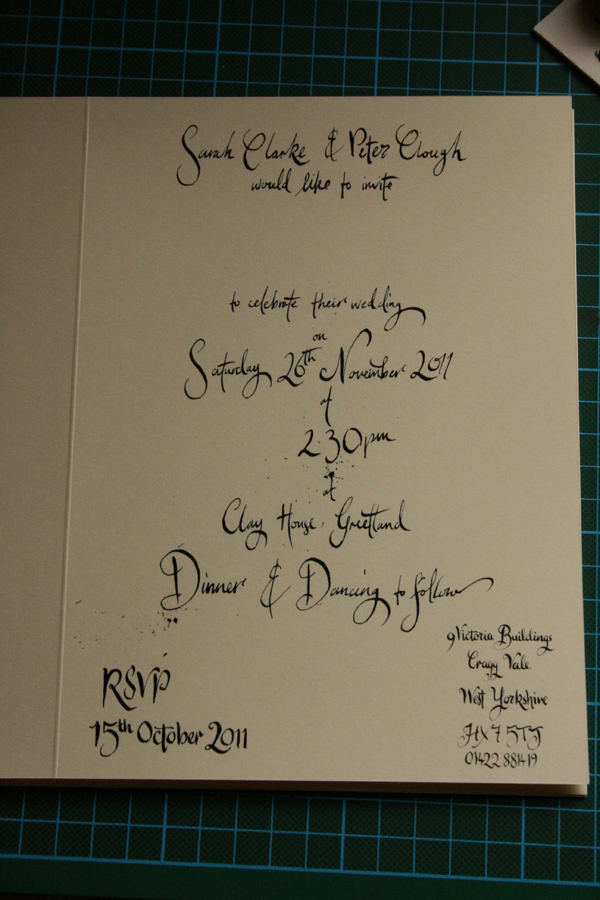 Sarah Clarke & Peter Clough
would like to invite
to celebrate their wedding
on
Saturday 26th November 2011
at
2.30pm
at
Clay House, Greetland
Dinner & Dancing to follow
RSVP
15th October 2011
9 Victoria Buildings
Cragg Vale
West Yorkshire
HX7 5TJ
01422 881419